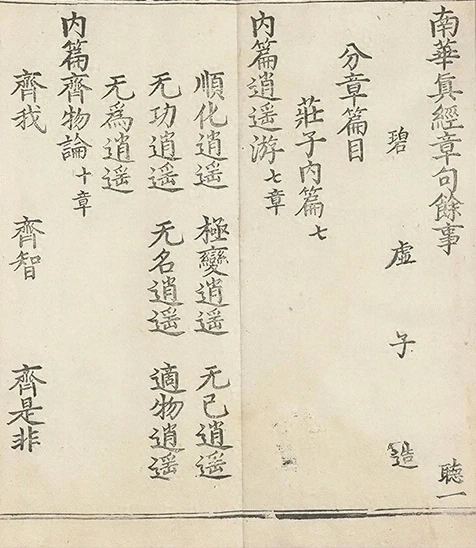 南華眞經章句餘事
聽一
碧虛子造
分章篇目
莊子內篇七
內篇逍遥游七章
順化逍遥 極變逍遥 无已逍遥
无功逍遥 无名逍遥 適物逍遥
无爲逍遥
內篇齊物論十章
齊我 齊智 齊是非